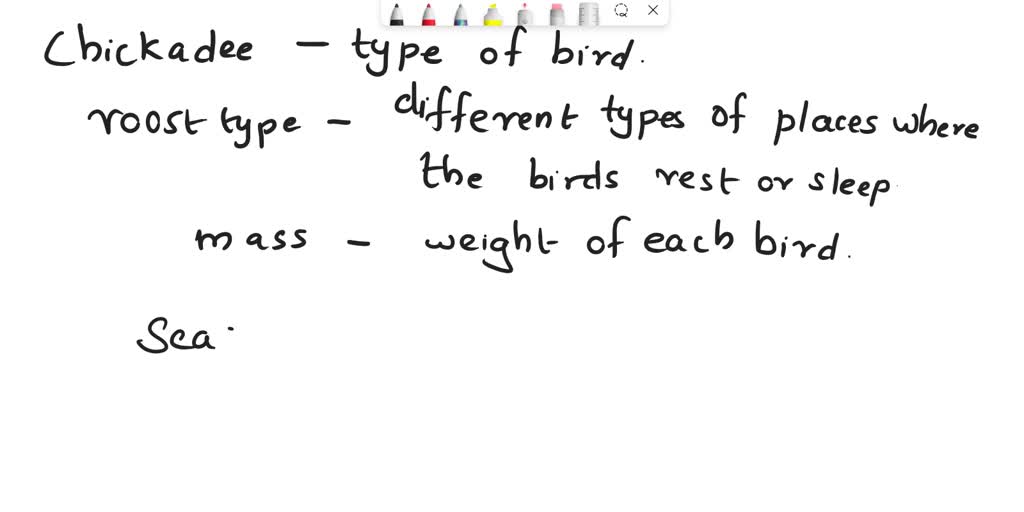 Chickadee - type of bird.
roost type - different types of places where
the birds rest or sleep
mass - weight of each bird.
Sca